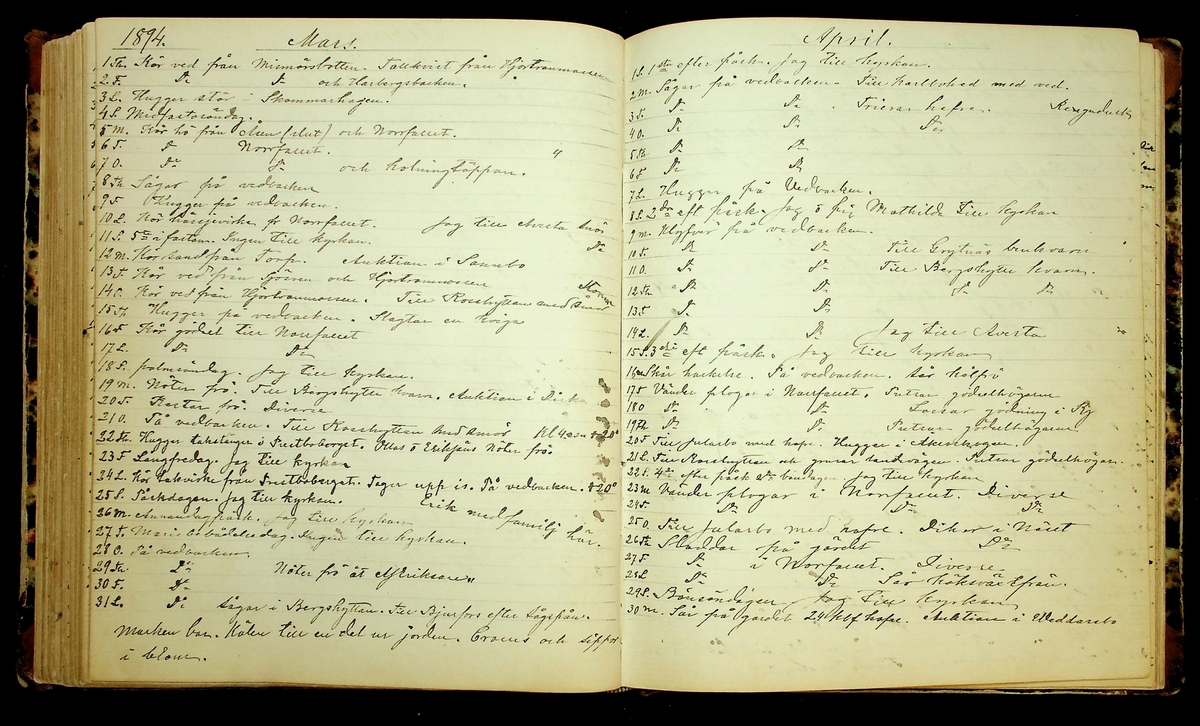 1894. Mars.
1 Th. Kör ved från Mismörsbotten. Tallkvist från Hjortronmossen
2 F. Do Do och Harbergsbacken.
3 L. Hugger stör i Skommarhagen.
4 S. Midfastosöndag.
5 M. Kör hö från Åsen (slut) och Norrfallet.
6 T. Do Norrfallet. "
7 O. Do Do och kolningtäppan.
8 Th Sågar på vedbacken
9 F Hugger på vedbacken.
10 L. Kör hässjevirke fr Norrfallet. Jag till Avesta Snö
11 S. 5te i fastan. Ingen till kyrkan. Do
12 M. Kör sand från Torp. Auktion i Sannbo
13 T. Kör ved från Sjöarna och Hjortronmossen Storm
14 O. Kör ved från Hjortronmossen. Till Rosshyttan med smör
15 Th Hugger på vedbacken. Slagtar en kviga
16 F Kör gödsel till Norrfallet
17 L. Do Do
18 S. palmsöndag. Jag till kyrkan.
19 M. Nöter frö. Till Bergshytte kvarn. Auktion i
20 T. Kastar frö. Diverse
21 O. På vedbacken. Till Rosshyttan med smör Kl 4 + 20°
22 Th. Hugger takstänger i Prestboberget. Ollas o Erikjans Nöter frö.
23 F Långfredag. Jag till kyrkan
24 L. Kör takvirke från Prestboberget. Tager upp is. På vedbacken. + 20°
25 S. Påskdagen. Jag till kyrkan. Erik med familj här.
26 M. Annandag påsk. Jag till kyrkan
27 T. Marie bebådelsedag. Ingen till kyrkan.
28 O. På vedbacken
29 Th Do Nöter frö åt Alf Eriksson "
30 F. Do
31 L. Do Sågar i Bergshyttan. Till Bjurfors efter sågspån.
Marken bar. Kälen till en del ur jorden. Crocus och sippor
i blom.
April.
1 S. 1sta efter påsk. Jag till kyrkan.
2 M. Sågar på vedbacken. Till Karlbohed med ved.
3 T. Do Do. Trieran hafre.
4 O. Do Do Do
5 Th Do Do
6 F Do Do
7 L. Hugger på Vedbacken.
8 S. 2dra eft påsk. Jag o Mathilda till kyrkan
9 M. Klyfver på vedbacken.
10 T. Do Do Till Grytnäs benkvarn
11 O. Do Do Till Bergshytte kvarn.
12 Th Do Do Do Do
13 F Do Do
14 L. Do Do Jag till Avesta
15 S. 3dje eft påsk. Jag till kyrkan
16 M Skär hackelse. På vedbacken. Sår kålfrö
17 T Vänder plogar i Norrfallet. Putsar gödselhögarna
18 O Do Do Forsar gödning i
19 Th Do Putsar gödselhögarna
20 F Till Jularbo med hafre. Hugger i Åkershagen.
21 L. Till Rosshyttan och grusar landsvägen. Putsar gödselhögar.
22 S. 4de efter påsk Jag till kyrkan
23 M Vänder plogar i Norrfallet. Diverse
24 T. Do Do Do
25 O. Till Jularbo med hafre. Diker i Nöret
26 Th Sladdar på gärdet Do
27 F Do i Norrfallet. Diverse
28 L Do Do Sår köksväxtfrön.
29 S. Bönsöndagen Jag till kyrkan
30 M. Sår på gärdet 24 kbf hafre. Auktion i Weddarbo